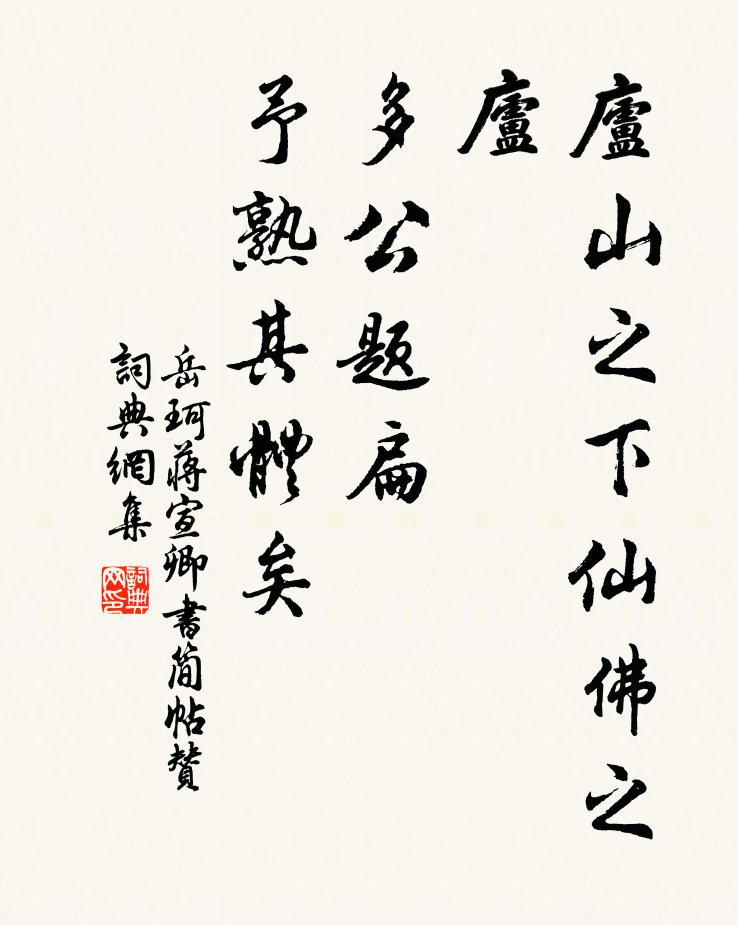 廬山之下仙佛之
廬
多公題扁
予熟其體矣
岳珂蔣宣卿書簡帖贊
詞典網集
詞典网印